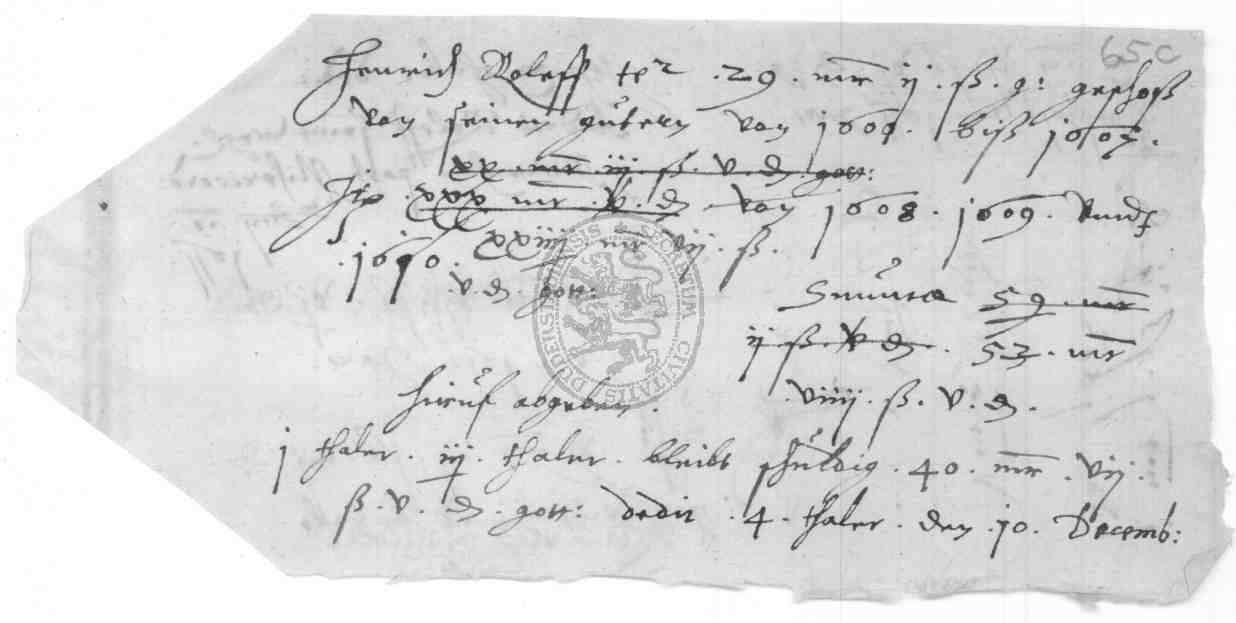 65c
Henrich Roleff t 29. mr ij. ß. g: geschoß
von seinen gütern von 1600. biß 1607.
xx mr iij ß. v. d. gott:
Itē xxx mr. v. d. von 1608. 1609. vnndt
1610. xxiiij mr vij ß.
v. d. gott:
Summa 59. mr
ij ß v d. 53. mr
viiij. ß. v. d.
hiruf abgeben.
j thaler. iij. thaler. bleibt schuldig. 40. mr. vij.
ß. v. d. gott: dedit .4. thaler. den .10. Decemb:
SECRETUM CIVITATIS DUDERSTADENSIS